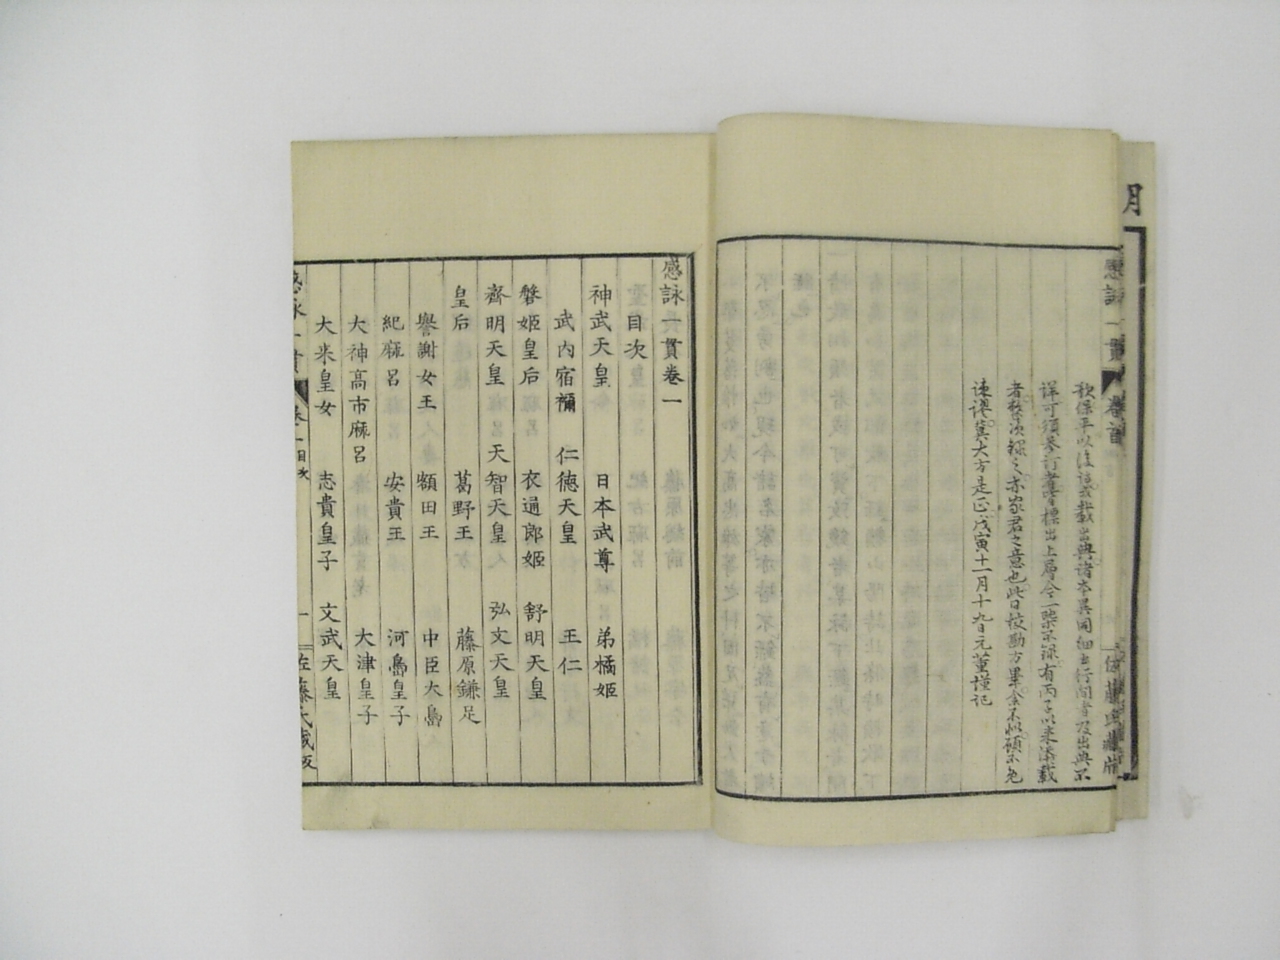 月
感詠一貫
卷首
佐藤氏藏版
歌保平以後該載出典諸本異同細書行間者及出典不
詳可須參訂者舊標出上層今一槩不録有両可以未添載
者移次録之亦家君之意也此日校勘方畢余不似碩不免
謬冀大方是正戊寅十一月十九日元董謹記
感詠一貫卷一
目次
神武天皇 日本武尊 弟橘姫
武内宿禰 仁徳天皇 王仁
磐姫皇后 衣通郎姫 舒明天皇
齊明天皇 天智天皇 弘文天皇
皇后 葛野王 藤原鎌足
譽謝女王 額田王 中臣大島
紀麻呂 安貴王 河島皇子
大神高市麻呂 大津皇子
大来皇女 志貴皇子 文武天皇
感詠一貫
卷一目次
一
佐藤氏藏板